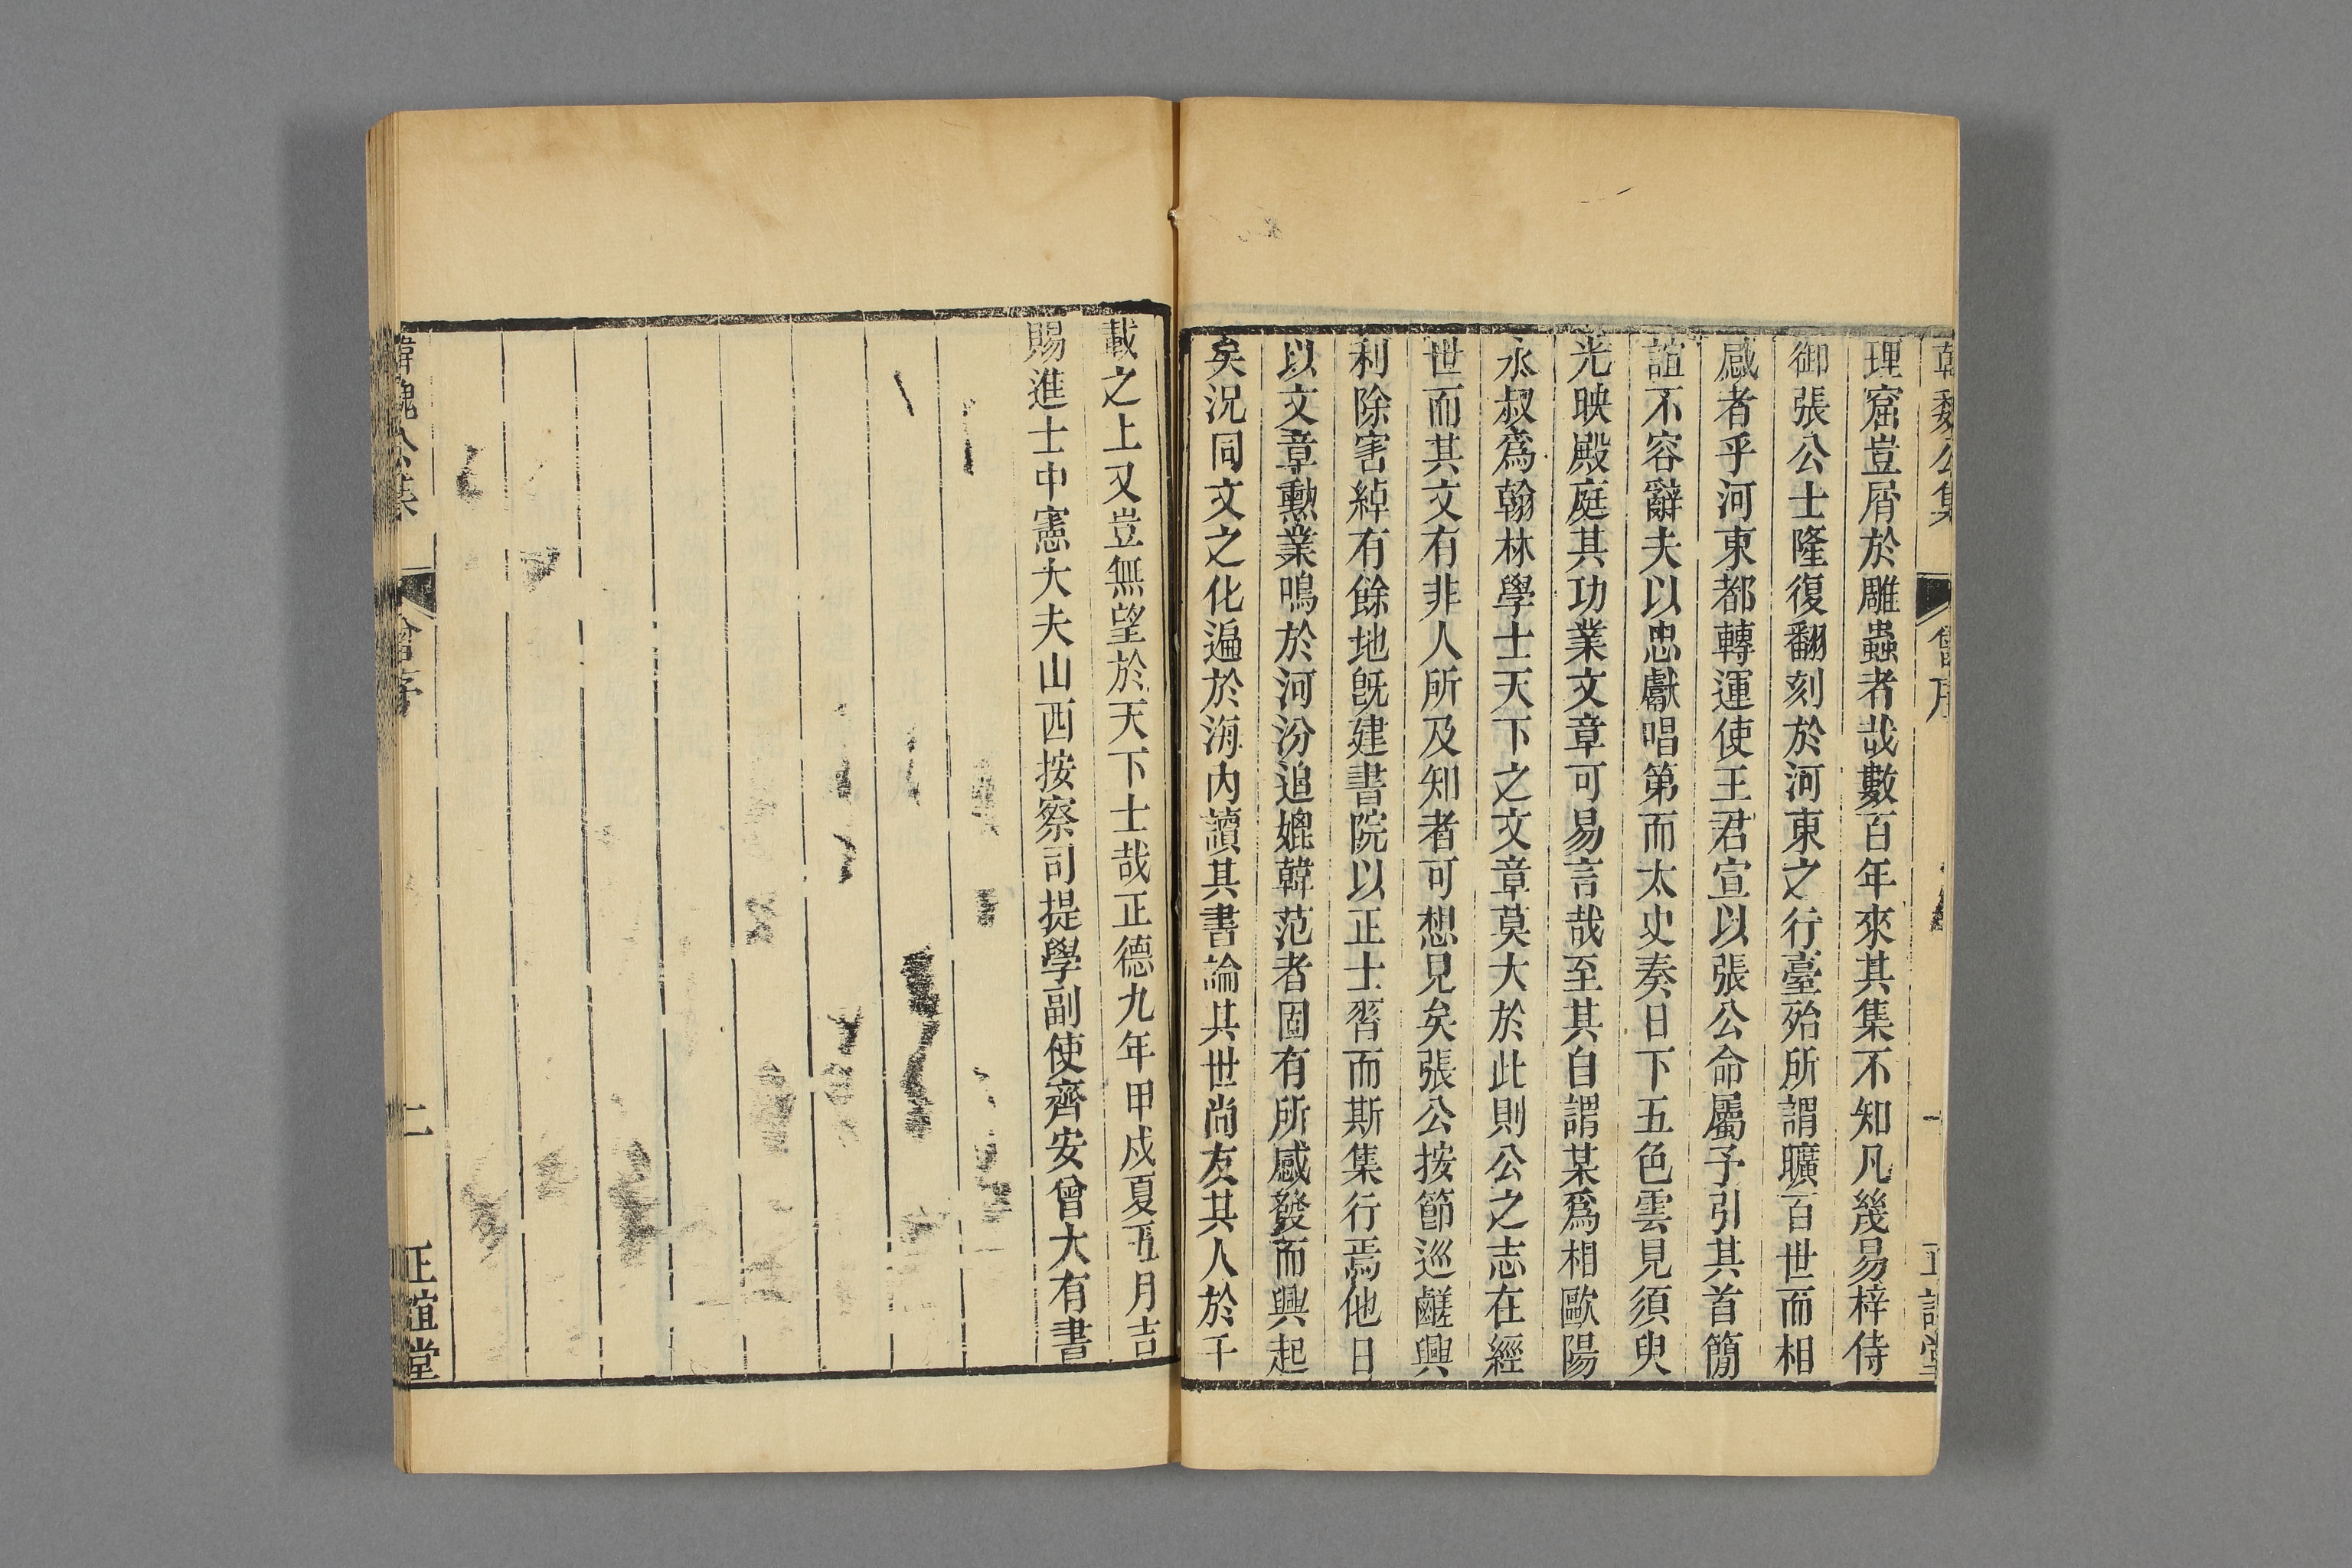 韓魏公集 曾序 一 正誼堂
理窟豈屑於雕蟲者哉數百年來其集不知凡幾易梓侍
御張公士隆復翻刻於河東之行臺殆所謂曠百世而相
感者乎河東都轉運使王君宣以張公命屬予引其首簡
誼不容辭夫以忠獻唱第而太史奏日下五色雲見須臾
光映殿庭其功業文章可易言哉至其自謂某爲相歐陽
永叔爲翰林學士天下之文章莫大於此則公之志在經
世而其文有非人所及知者可想見矣張公按節巡鹺興
利除害綽有餘地旣建書院以正士習而斯集行焉他日
以文章勲業鳴於河汾追媲韓范者固有所感發而興起
矣況同文之化遍於海內讀其書論其世尚友其人於千
載之上又豈無望於天下士哉正德九年甲戌夏五月吉
賜進士中憲大夫山西按察司提學副使齊安曾大有書
韓魏公集 曾序 二 正誼堂